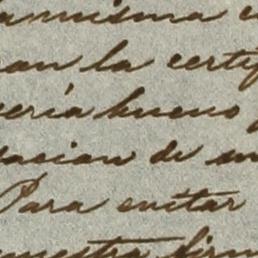 la misma
an la certif
sería bueno
dacion de
Para evitar
nuestra firm